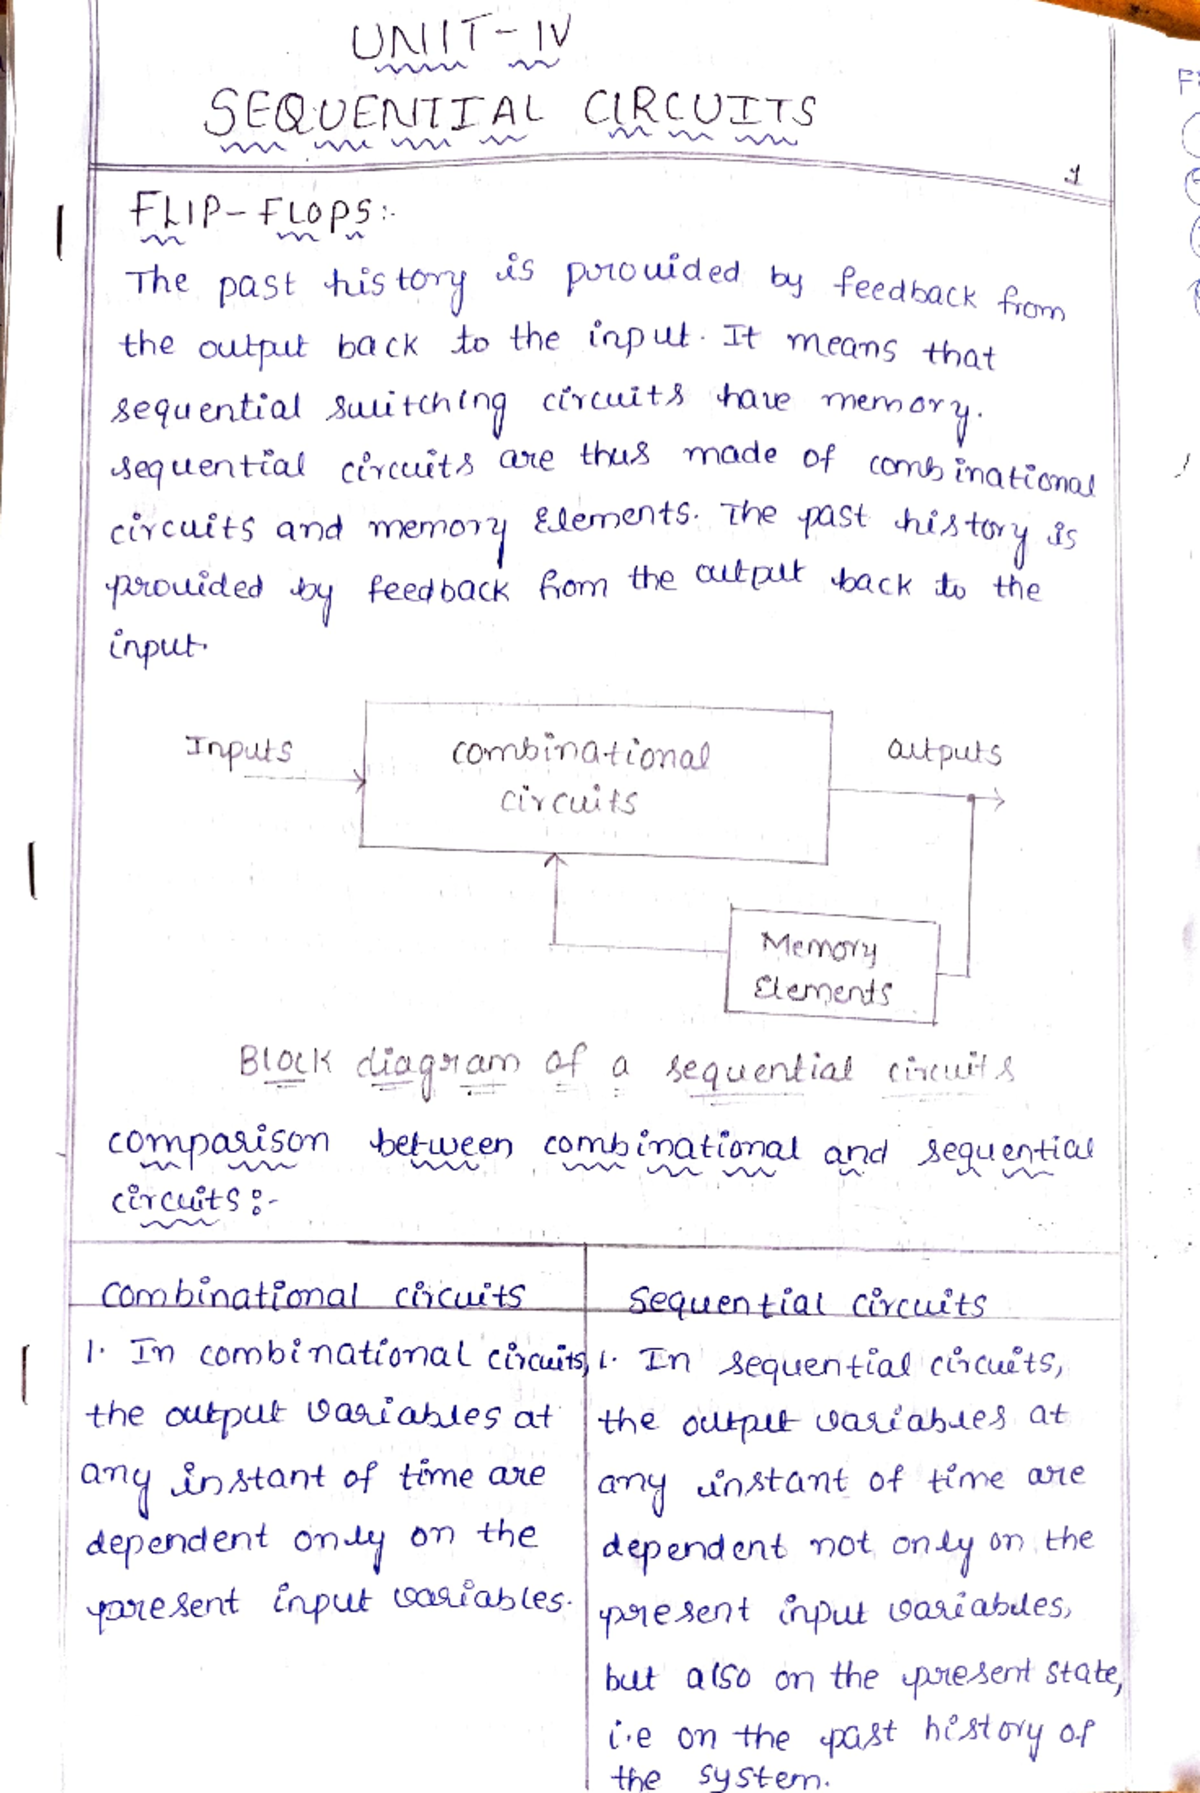 UNIT-IV
SEQUENTIAL CIRCUITS
1
FLIP-FLOPS:-
The past history is provided by feedback from
the output back to the input. It means that
sequential switching circuits have memory.
sequential circuits are thus made of combinational
circuits and memory Elements. The past history is
provided by feedback from the output back to the
input.
Inputs
combinational
circuits
outputs
Memory
Elements
Block diagram of a sequential circuits
comparison between combinational and sequential
circuits:-
Combinational circuits
Sequential circuits
1. In combinational circuits,
the output variables at
any instant of time are
dependent only on the
present input variables.
1. In sequential circuits,
the output variables at
any instant of time are
dependent not only on the
present input variables,
but also on the present state,
i.e on the past history of
the system.